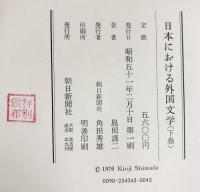 日本における外国文学〈下巻〉
定価 五六〇〇円
発行日 昭和五十一年二月十日 第一刷
著者 島田謹二
発行者 朝日新聞社 角田秀雄
印刷所 明善印刷
発行所 朝日新聞社
© 1976 Kinji Shimada
0090-254343-0042